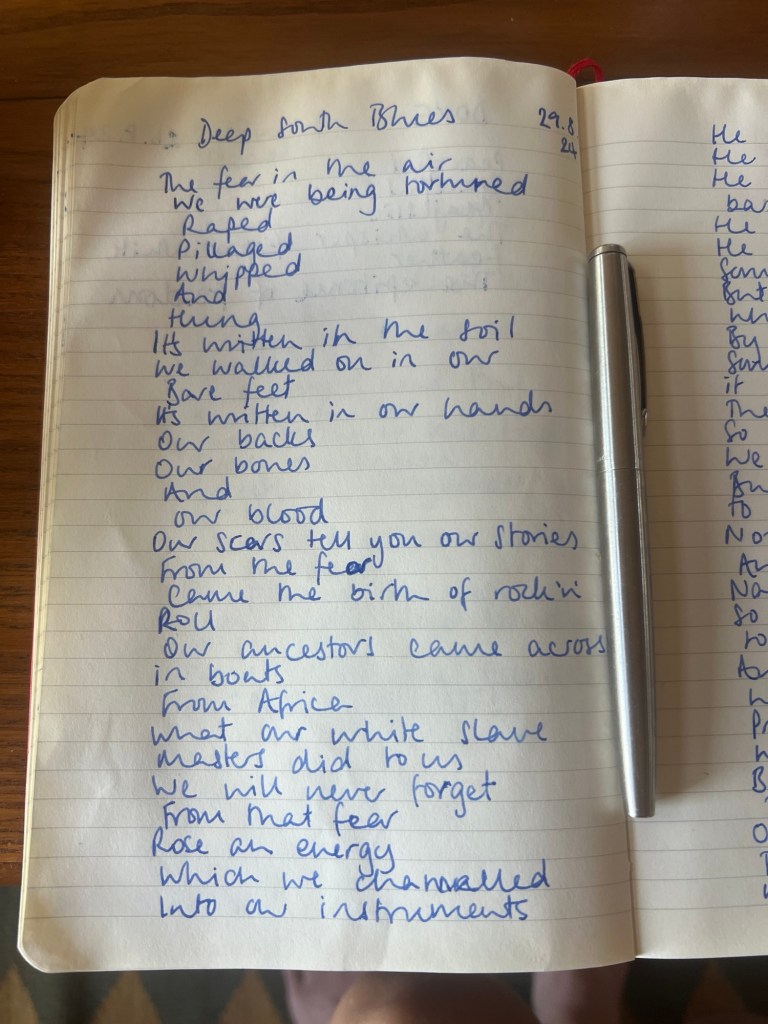 Deep South Blues
29.8
24
The fear in the air
We were being tortured
Raped
Pillaged
Whipped
And
Hung
It's written in the soil
We walked on in our
Bare feet
It's written in our hands
Our backs
Our bones
And
our blood
Our scars tell you our stories
From the fear
Came the birth of rock'n'
Roll
Our ancestors came across
in boats
From Africa
What our white slave
masters did to us
We will never forget
From that fear
Rose an energy
Which we channelled
Into our instruments
He
He
He
He
He
But
By
it
The
So
We
to
So
to